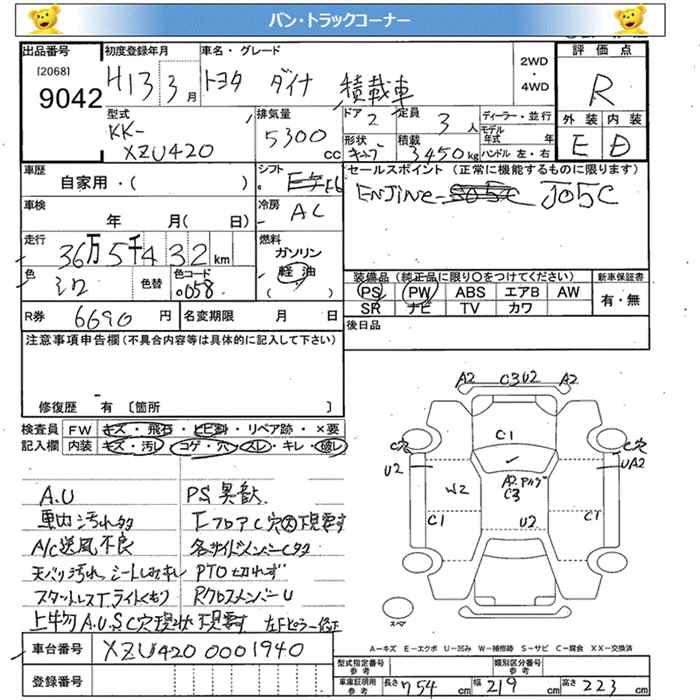 バン・トラックコーナー
出品番号 [2068] 9042
初度登録年月 H13 3月
車名・グレード トヨタ ダイナ 積載車
2WD・4WD
評価点 R
外装 E 内装 D
型式 KK-XZU420
排気量 5300 cc
ドア 2 定員 3人
形状 積載 3450kg
ディーラー・並行
モデル年式 年
ハンドル 左・右
車歴 自家用・( )
シフト
セールスポイント (正常に機能するものに限ります)
ENJINE J05C
車検 年 月( 日)
冷房 AC
走行 36万5千432km
燃料 ガソリン 軽油 ( )
色 シロ 色替 色コード 058
装備品 (純正品に限り○をつけてください) 新車保証書
PS PW ABS エアB AW 有・無
SR ナビ TV カワ
R券 6690円 名変期限 月 日
後日品
注意事項申告欄 (不具合内容等は具体的に記入して下さい)
修復歴 有 〔箇所 〕
検査員 FW キズ・飛石・ヒビ・リペア跡・×要
記入欄 内装 キズ・汚レ・コゲ・穴・スレ・キレ・破レ
A2 C3U2 A2
C穴 C1 C穴
U2 UA2
W2 C3
C1 U2 C1
スペア
A.U PS異音
車内汚れ多 下フロアC穴 要す
A/C送風不良 各サイドメンバーC多
天バリ汚れ シート キレ PTO切れず
スタットレスT ライトくもり RクロスメンバーU
上物A.U.S.C穴現状 左Fピラー修正
A-キズ E-エクボ U-凹み W-補修跡 S-サビ C-腐食 XX-交換済
車台番号 XZU420 0001940
登録番号
型式指定番号 参考 類別区分番号 参考
車庫証明用 参考 長さ 754cm 幅 219cm 高さ 223cm